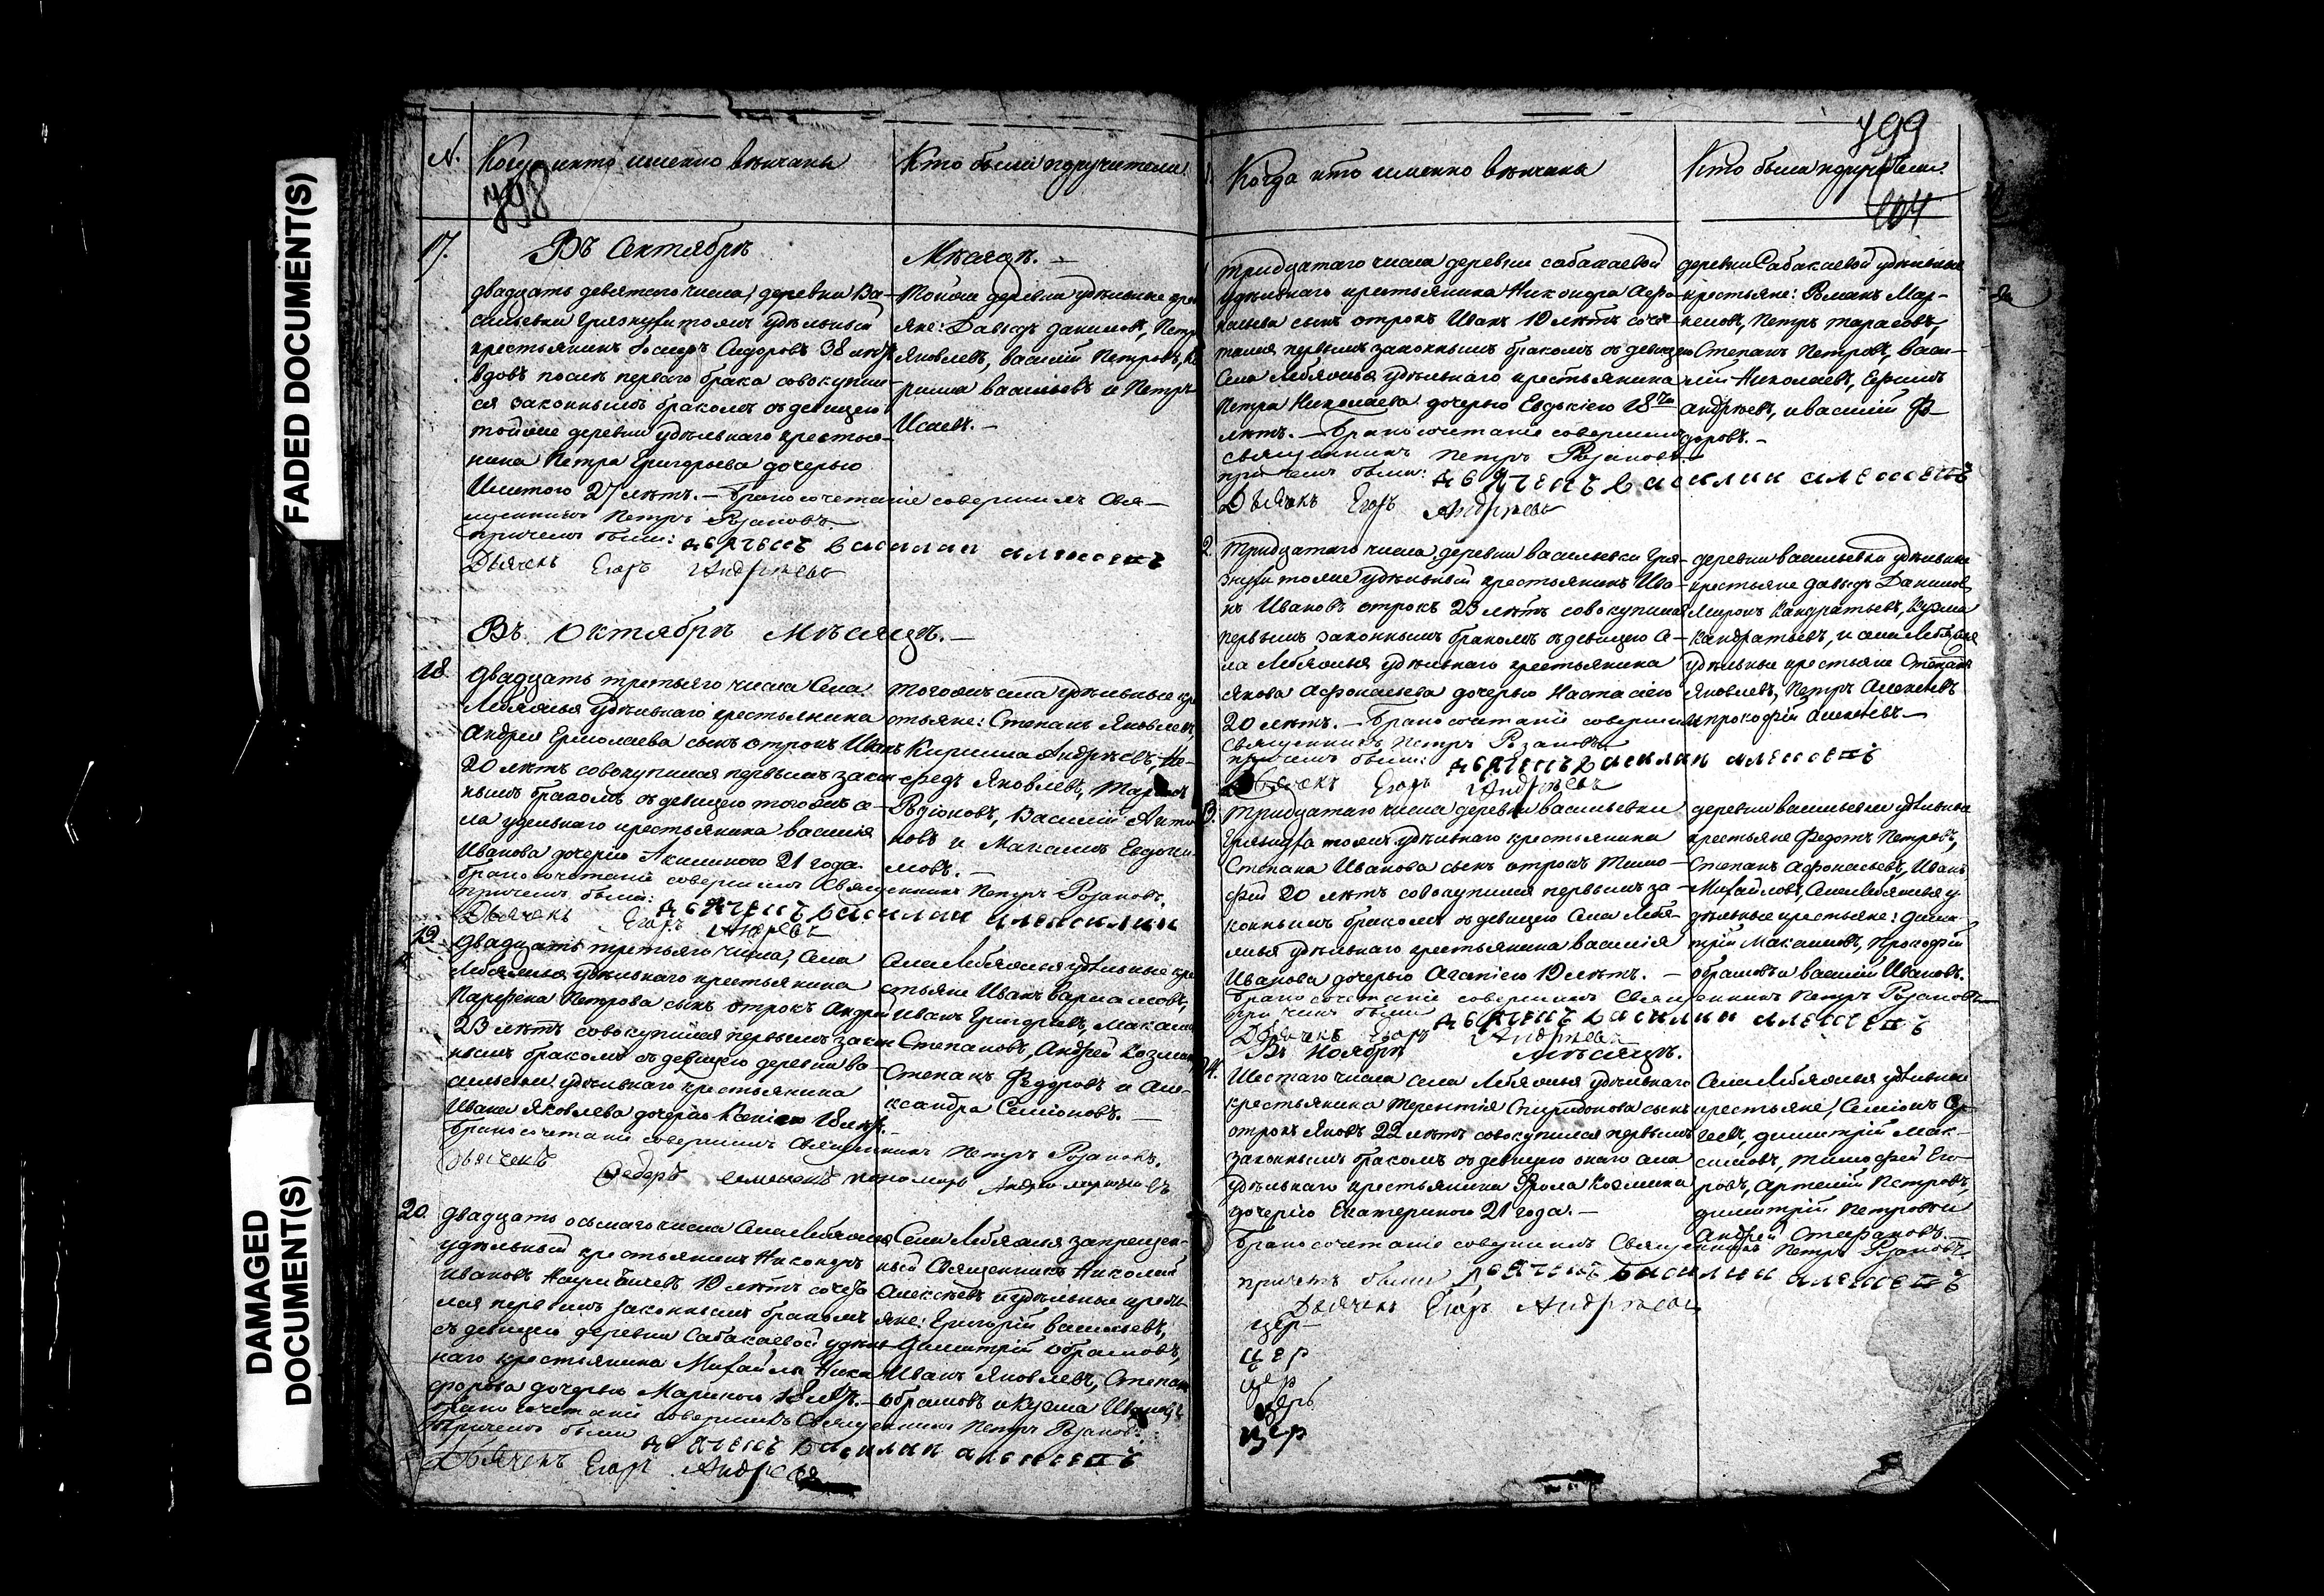 FADED DOCUMENT(S)
DAMAGED
DOCUMENT(S)
N.
Когда и кто именно венчаны
Кто были поручители
798
17.
Въ Сентябрѣ
Мѣсяцѣ. —
двадцать девятого числа, деревни Ва-
сильевки Грязнуха тожъ удѣльный
крестьянинъ Сидоровъ 38 лѣтъ
вдовъ послѣ перваго брака совокупил-
ся законнымъ бракомъ съ девицею
той же деревни удѣльнаго крестья-
нина Петра Григорьева дочерью
27 лѣтъ. — бракосочетание совершилъ Свя-
щенникъ Петръ Розановъ.
причемъ были: дьячекъ василии алексеевъ
Дьячекъ Егоръ Андреевъ
Той же деревни удѣльные крес
яне: Давыдъ Даниловъ, Петръ
Яковлевъ, Василій Петровъ,
Васильевъ и Петръ
Исаевъ. —
Въ Октябрѣ Мѣсяцѣ. —
18.
двадцать третьяго числа Села
Лебяжья удѣльнаго крестьянина
Андрея Ермолаева сынъ отрокъ Иванъ
20 лѣтъ совокупился первымъ закон
нымъ бракомъ съ девицею того жъ се-
ла удельнаго крестьянина Василія
Иванова дочерью Акилиною 21 года.
бракосочетание совершилъ Священникъ Петръ Розановъ.
причемъ были: дьячекъ василии
Дьячекъ Егоръ Андреевъ
того жъ села удѣльные кре
стьяне: Степанъ Яковлевъ,
Кирила Андреевъ, Не-
федъ Яковлевъ,
Родионовъ, Василій Анто
новъ и Максимъ Евдоки-
мовъ. —
19.
двадцать третьяго числа, Села
Лебяжья удѣльнаго крестьянина
Парфена Петрова сынъ отрокъ Андрей
23 лѣтъ совокупился первымъ закон
нымъ бракомъ съ девицею деревни Ва-
сильевки удѣльнаго крестьянина
Ивана Яковлева дочерью Ксеніею 18 лѣтъ.
бракосочетание совершилъ Священникъ Петръ Розановъ.
Дьячекъ Федоръ пономарь
Села Лебяжья удѣльные кре
стьяне Иванъ Варламовъ,
Иванъ Григорьевъ, Максимъ
Степановъ, Андрей Козмин
Степанъ Федоровъ и Але-
ксандра Семioновъ. —
20.
двадцать осьмаго числа Села Лебяжья
удѣльный крестьянинъ Никаноръ
Ивановъ 19 лѣтъ сочета
лся первымъ законнымъ бракомъ
съ девицею деревни Сабакаевой удѣль-
наго крестьянина Михайла Ники
форова дочерью Мариною 18 лѣтъ. —
бракосочетание совершилъ Священникъ Петръ Розановъ.
причемъ были дьячекъ василии алексеевъ
Дьячекъ Егоръ Андреевъ
Села Лебяжья запрещен-
ный Священникъ Николай
Алексѣевъ и удѣльные кресть
яне: Григорій Васильевъ,
Димитрій Абрамовъ,
Иванъ Яковлевъ, Степанъ
Абрамовъ и Кузма Ивановъ
799
Когда кто именно венчаны
Кто были поручители.
104
тридцатаго числа деревни Сабакаевой
удѣльнаго крестьянина Никанора Афо-
насьева сынъ отрокъ Иванъ 19 лѣтъ соче-
тался первымъ законнымъ бракомъ съ девицею
Села Лебяжья удѣльнаго крестьянина
Петра Николаева дочерью Евдокіею 18ти
лѣтъ. — Бракосочетание совершилъ
Священникъ Петръ Розановъ.
при чемъ были: дьячекъ василии алексеевъ
Дьячекъ Егоръ Андреевъ
деревни Сабакаевой удѣльные
крестьяне: Романъ Мар-
келовъ, Петръ Тарасовъ,
Степанъ Петровъ, Васи-
лій Николаевъ, Ефимъ
Андреевъ, и Василій Фе-
доровъ. —
2.
Тридцатаго числа деревни Васильевки Гря-
знухи тожъ удѣльный крестьянинъ Ива-
нъ Ивановъ отрокъ 23 лѣтъ совокупился
первымъ законнымъ бракомъ съ девицею Се-
ла Лебяжья удѣльнаго крестьянина
Якова Афонасьева дочерью Настасіею
20 лѣтъ. — Бракосочетание совершилъ
Священникъ Петръ Розановъ.
причемъ были: дьячекъ василии алексеевъ
Дьячекъ Егоръ Андреевъ
деревни Васильевки удѣльные
крестьяне Давыдъ Данилов
Миронъ Кандратьевъ, Кузма
Кандратьевъ, и села Лебяжья
удѣльные крестьяне Степанъ
Яковлевъ, Петръ Алексѣевъ
и Прокофій Алексѣевъ. —
3.
Тридцатаго числа деревни Васильевки
Грязнуха тожъ удѣльнаго крестьянина
Степана Иванова сынъ отрокъ Тимо-
фей 20 лѣтъ совокупился первымъ за-
коннымъ бракомъ съ девицею Села Лебя-
жья удѣльнаго крестьянина Василія
Иванова дочерью Агапіею 19 лѣтъ. —
Бракосочетание совершилъ Священникъ Петръ Розановъ
при чемъ были дьячекъ василии алексеевъ
Дьячекъ Егоръ Андреевъ
деревни Васильевки удѣльные
крестьяне Федотъ Петровъ,
Степанъ Афонасьевъ, Иванъ
Михайловъ, Села Лебяжья у-
дѣльные крестьяне: Дими-
трій Максимовъ, Прокофій
Абрамовъ и Василій Ивановъ.
Въ Ноябрѣ Мѣсяцѣ.
4.
Шестаго числа села Лебяжья удѣльнаго
крестьянина Терентія Спиридонова сынъ
отрокъ Яковъ 22 лѣтъ совокупился первымъ
законнымъ бракомъ съ девицею онаго села
удѣльнаго крестьянина Фрола Козмина
дочерью Екатериною 21 года. —
Бракосочетание совершилъ Священникъ Петръ Розановъ.
причемъ были дьячекъ василии алексеевъ
Дьячекъ Егоръ Андреевъ
Села Лебяжья удѣльные
крестьяне, Семionъ Сер-
геевъ, Димитрій Мак-
симовъ, Тимофей Его-
ровъ, Артемій Петровъ,
Димитрій Петровъ и
Андрей Стефановъ.
цер—
цер
цер
церь
цер